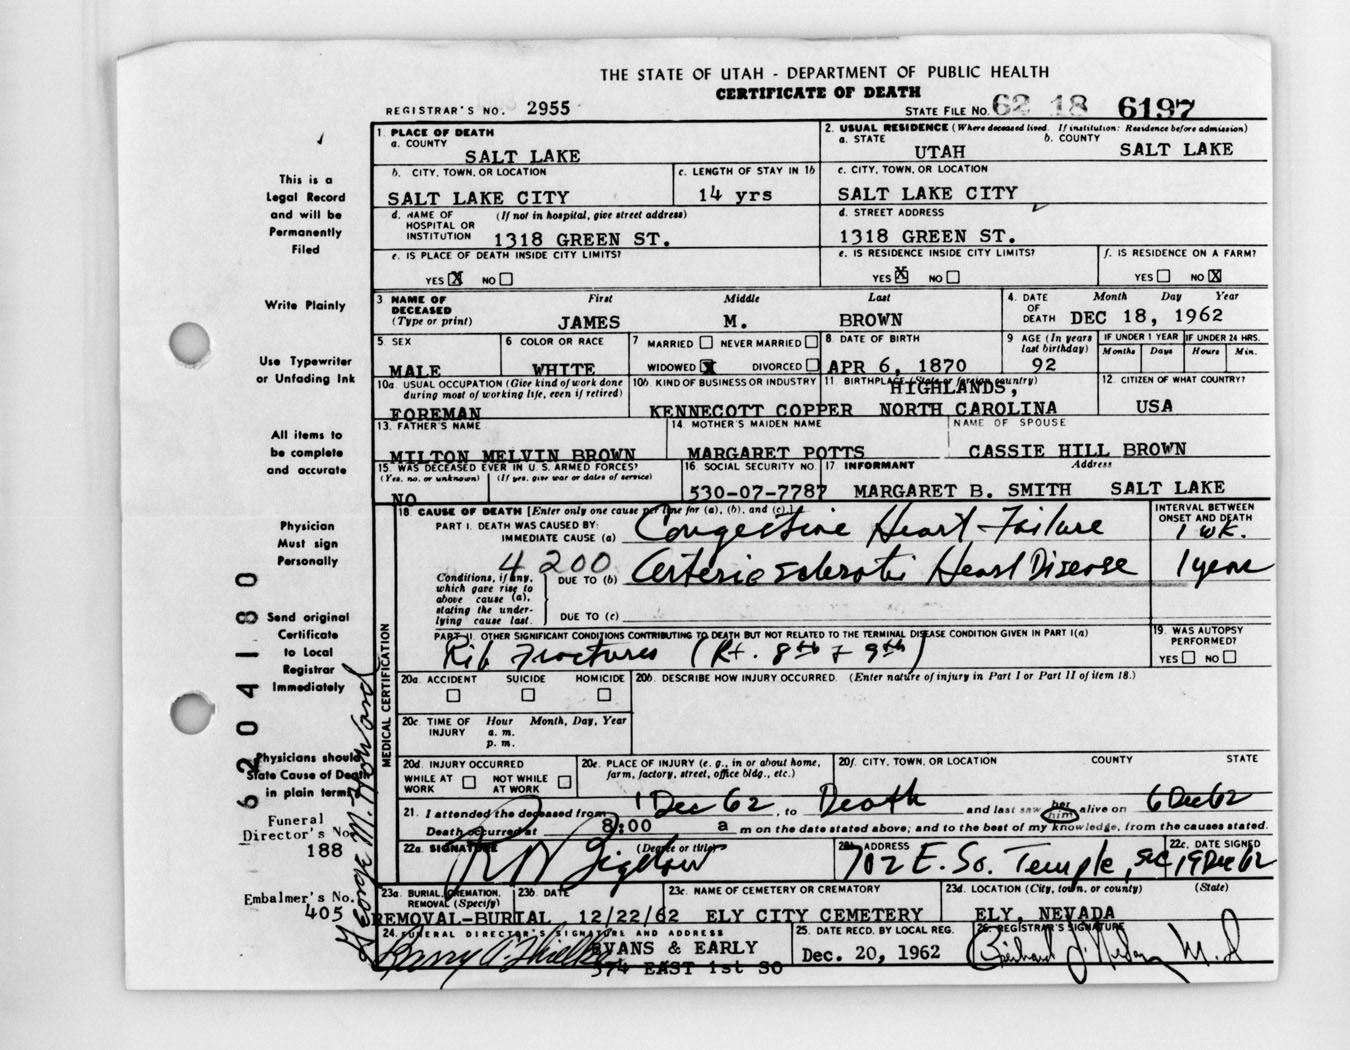 THE STATE OF UTAH - DEPARTMENT OF PUBLIC HEALTH
CERTIFICATE OF DEATH
REGISTRAR'S NO. 2955
STATE FILE NO. 62 18 6197
This is a
Legal Record
and will be
Permanently
Filed
Write Plainly
Use Typewriter
or Unfading Ink
All items to
be complete
and accurate
Physician
Must sign
Personally
Send original
Certificate
to Local
Registrar
Immediately
Physicians should
State Cause of Death
in plain terms
Funeral
Director's No.
188
Embalmer's No.
405
6204180
George M. Howard
1. PLACE OF DEATH
a. COUNTY
SALT LAKE
2. USUAL RESIDENCE (Where deceased lived. If institution: Residence before admission)
a. STATE UTAH b. COUNTY SALT LAKE
b. CITY, TOWN, OR LOCATION
SALT LAKE CITY
c. LENGTH OF STAY IN 1b
14 yrs
c. CITY, TOWN, OR LOCATION
SALT LAKE CITY
d. NAME OF HOSPITAL OR INSTITUTION (If not in hospital, give street address)
1318 GREEN ST.
d. STREET ADDRESS
1318 GREEN ST.
e. IS PLACE OF DEATH INSIDE CITY LIMITS?
YES X NO
e. IS RESIDENCE INSIDE CITY LIMITS?
YES X NO
f. IS RESIDENCE ON A FARM?
YES NO X
3 NAME OF DECEASED (Type or print) First Middle Last
JAMES M. BROWN
4. DATE OF DEATH Month Day Year
DEC 18, 1962
5 SEX
MALE
6 COLOR OR RACE
WHITE
7 MARRIED NEVER MARRIED
WIDOWED X DIVORCED
8. DATE OF BIRTH
APR 6, 1870
9 AGE (In years last birthday)
92
IF UNDER 1 YEAR
Months Days
IF UNDER 24 HRS.
Hours Min.
10a. USUAL OCCUPATION (Give kind of work done during most of working life, even if retired)
FOREMAN
10b. KIND OF BUSINESS OR INDUSTRY
KENNECOTT COPPER
11. BIRTHPLACE (State or foreign country)
HIGHLANDS,
NORTH CAROLINA
12. CITIZEN OF WHAT COUNTRY?
USA
13. FATHER'S NAME
MILTON MELVIN BROWN
14 MOTHER'S MAIDEN NAME
MARGARET POTTS
NAME OF SPOUSE
CASSIE HILL BROWN
15. WAS DECEASED EVER IN U. S. ARMED FORCES?
(Yes, no. or unknown) (If yes, give war or dates of service)
NO
16. SOCIAL SECURITY NO.
530-07-7787
17. INFORMANT Address
MARGARET B. SMITH SALT LAKE
MEDICAL CERTIFICATION
18. CAUSE OF DEATH [Enter only one cause per line for (a), (b), and (c).]
INTERVAL BETWEEN ONSET AND DEATH
PART I. DEATH WAS CAUSED BY:
IMMEDIATE CAUSE (a) Congestive Heart Failure 1 wk.
4200
Conditions, if any, which gave rise to above cause (a), stating the underlying cause last.
DUE TO (b) Arteriosclerotic Heart Disease 1 year
DUE TO (c)
PART II. OTHER SIGNIFICANT CONDITIONS CONTRIBUTING TO DEATH BUT NOT RELATED TO THE TERMINAL DISEASE CONDITION GIVEN IN PART I(a)
Rib Fractures (Rt. 8th & 9th)
19. WAS AUTOPSY PERFORMED?
YES NO
20a. ACCIDENT SUICIDE HOMICIDE
20b. DESCRIBE HOW INJURY OCCURRED. (Enter nature of injury in Part I or Part II of item 18.)
20c. TIME OF INJURY Hour Month, Day, Year
a. m.
p. m.
20d. INJURY OCCURRED
WHILE AT WORK NOT WHILE AT WORK
20e. PLACE OF INJURY (e. g., in or about home, farm, factory, street, office bldg., etc.)
20f. CITY, TOWN, OR LOCATION COUNTY STATE
21. I attended the deceased from 1 Dec 62, to Death and last saw her him alive on 6 Dec 62
Death occurred at 8:00 a m on the date stated above; and to the best of my knowledge, from the causes stated.
22a. SIGNATURE (Degree or title)
Bigelow
22b. ADDRESS
702 E. So. Temple, SLC
22c. DATE SIGNED
19 Dec 62
23a. BURIAL, CREMATION, REMOVAL (Specify)
REMOVAL-BURIAL
23b. DATE
12/22/62
23c. NAME OF CEMETERY OR CREMATORY
ELY CITY CEMETERY
23d. LOCATION (City, town, or county) (State)
ELY, NEVADA
24. FUNERAL DIRECTOR'S SIGNATURE AND ADDRESS
EVANS & EARLY
574 EAST 1st SO
25. DATE RECD. BY LOCAL REG.
Dec. 20, 1962
26. REGISTRAR'S SIGNATURE
M.D